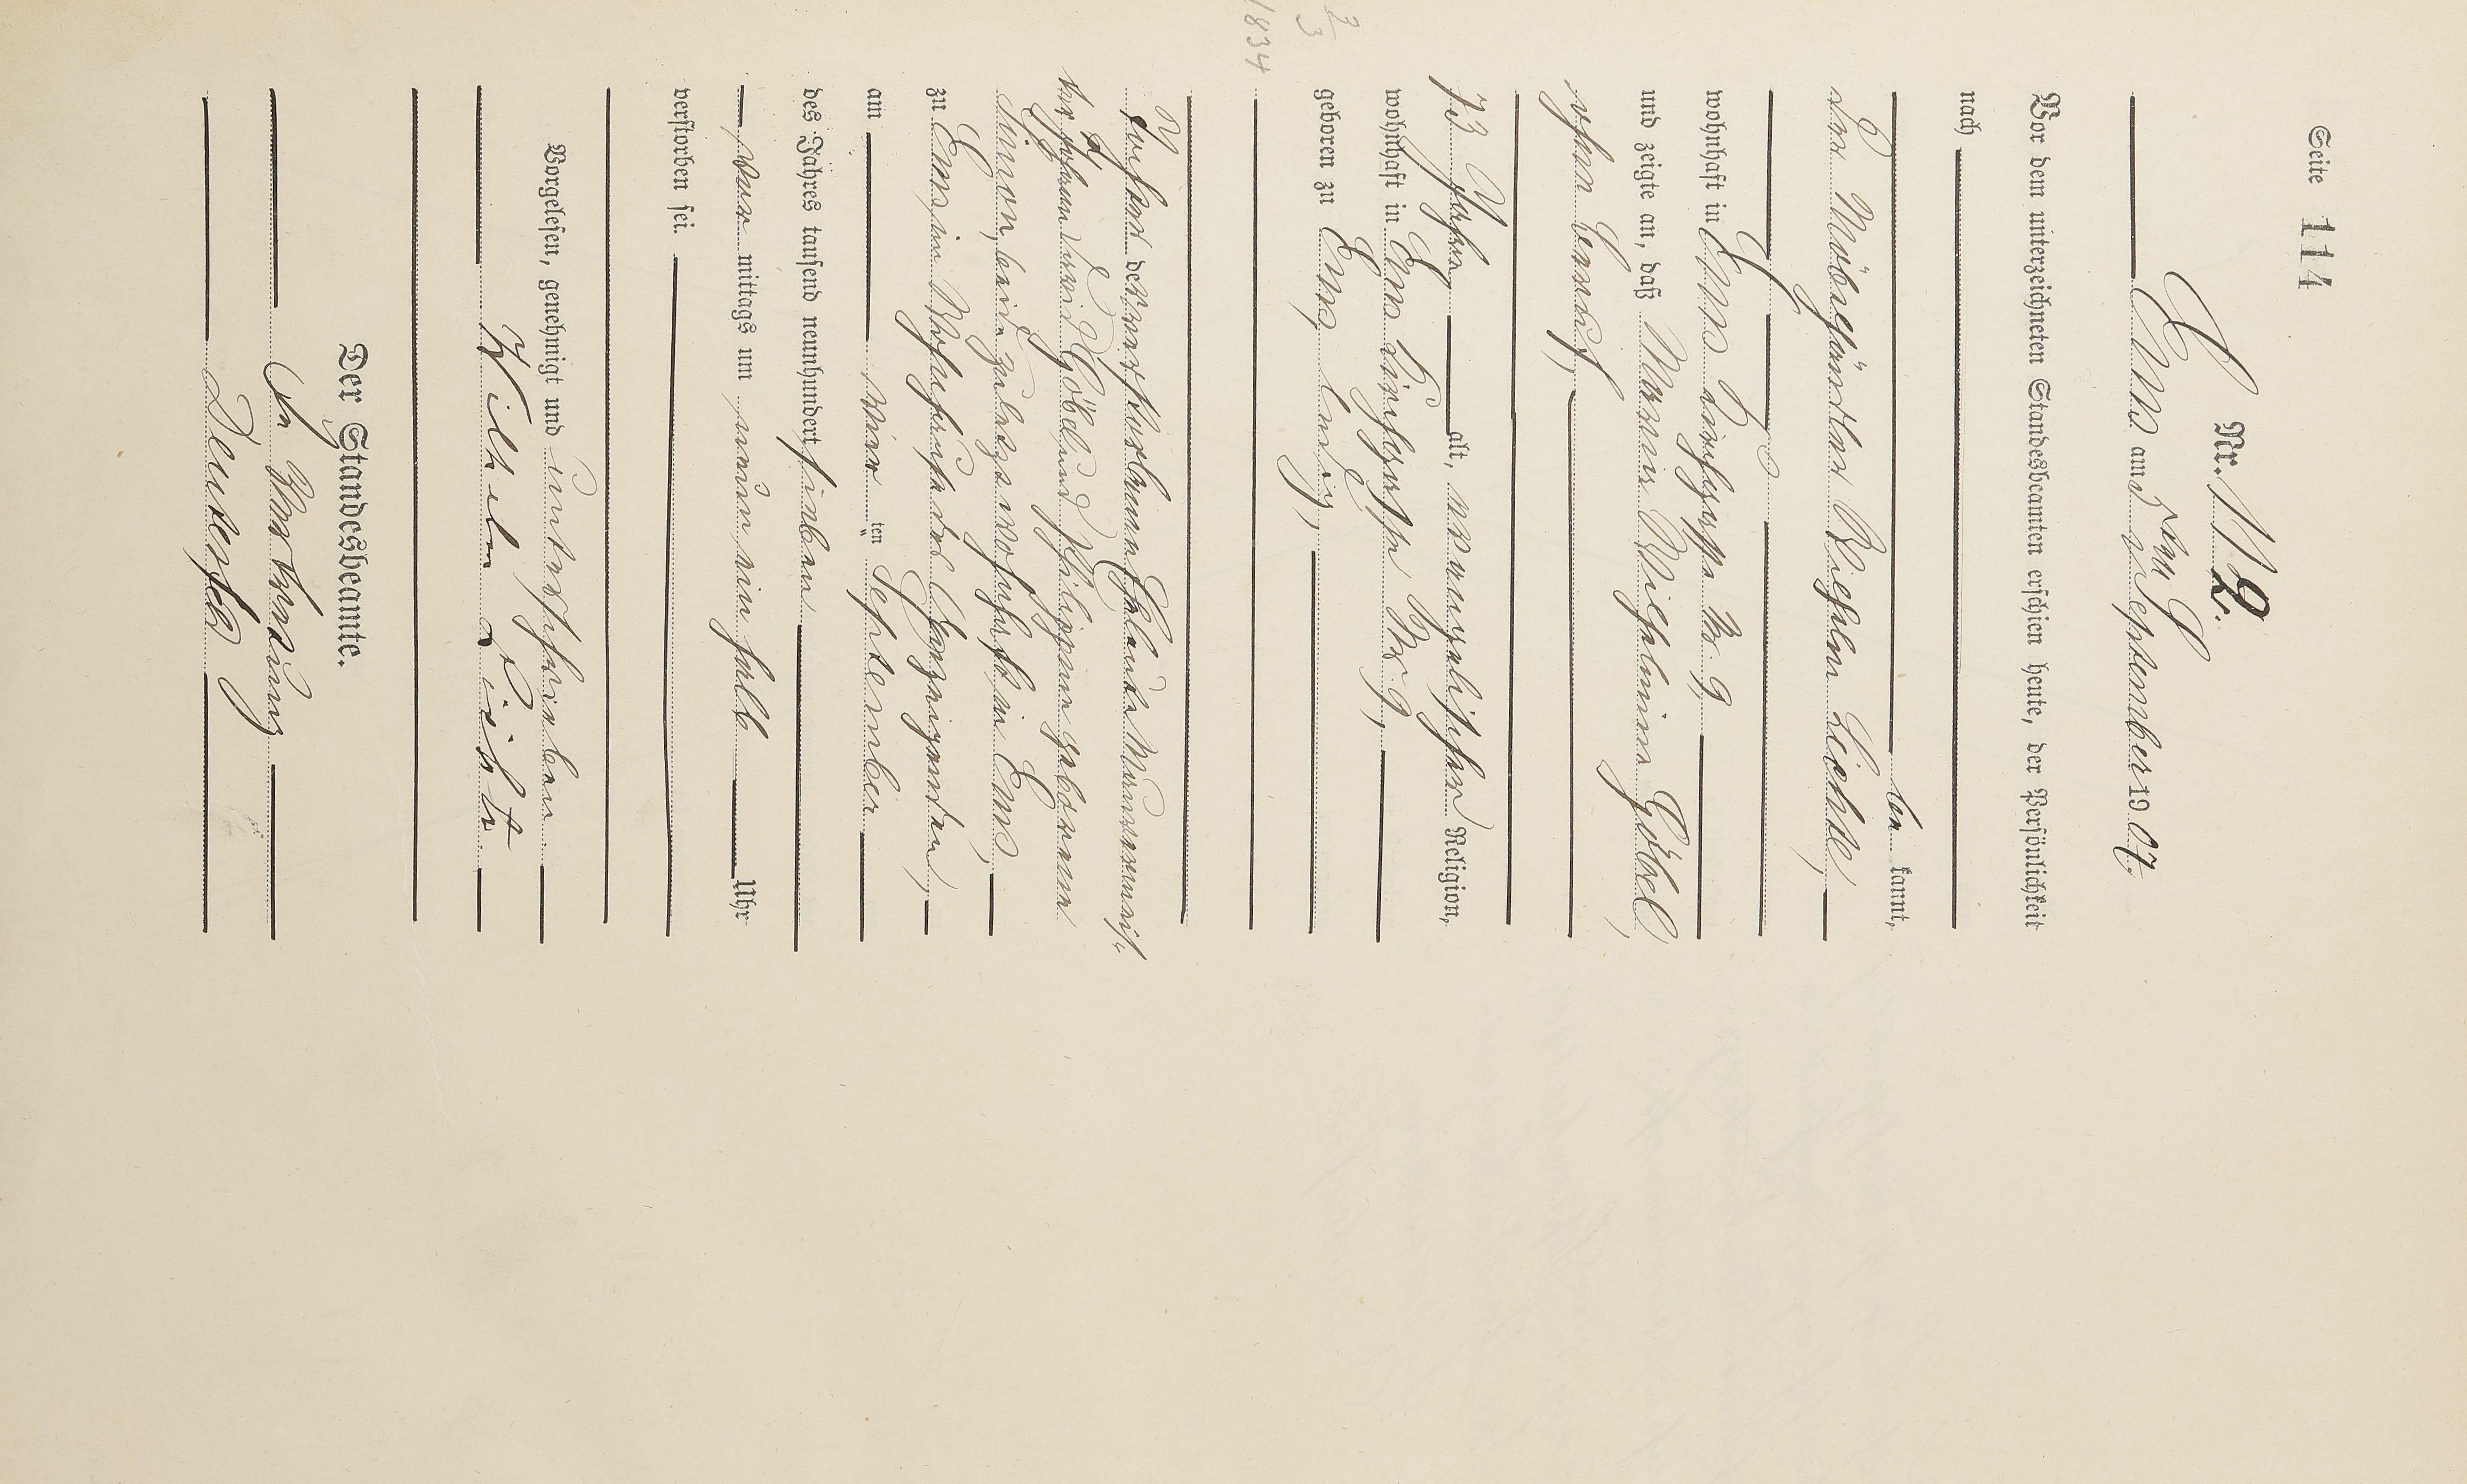 Seite 114
Nr. 112.
Ems am vier September 1907.
Vor dem unterzeichneten Standesbeamten erschien heute, der Persönlichkeit
nach
be kannt,
der Möbelhändler Wilhelm Licht,
wohnhaft in Ems Kirchgasse Nr. 9
und zeigte an, daß Maria Wilhelmine Göbel,
ohne Beruf,
73 Jahre alt, evangelischer Religion,
wohnhaft in Ems Kirchgasse Nr. 9,
geboren zu Ems, ledig,
Tochter der verstorbenen Eheleute
Johann David Göbel und Philippine geborene
Simon, beide zuletzt wohnhaft in Ems,
zu Ems in Wohnung des Anzeigenden,
am vier ten September
des Jahres tausend neunhundert sieben
vor mittags um neun ein halb Uhr
verstorben sei.
Vorgelesen, genehmigt und unterschrieben
Wilhelm Licht.
Der Standesbeamte.
In Vertretung
2/3
1834